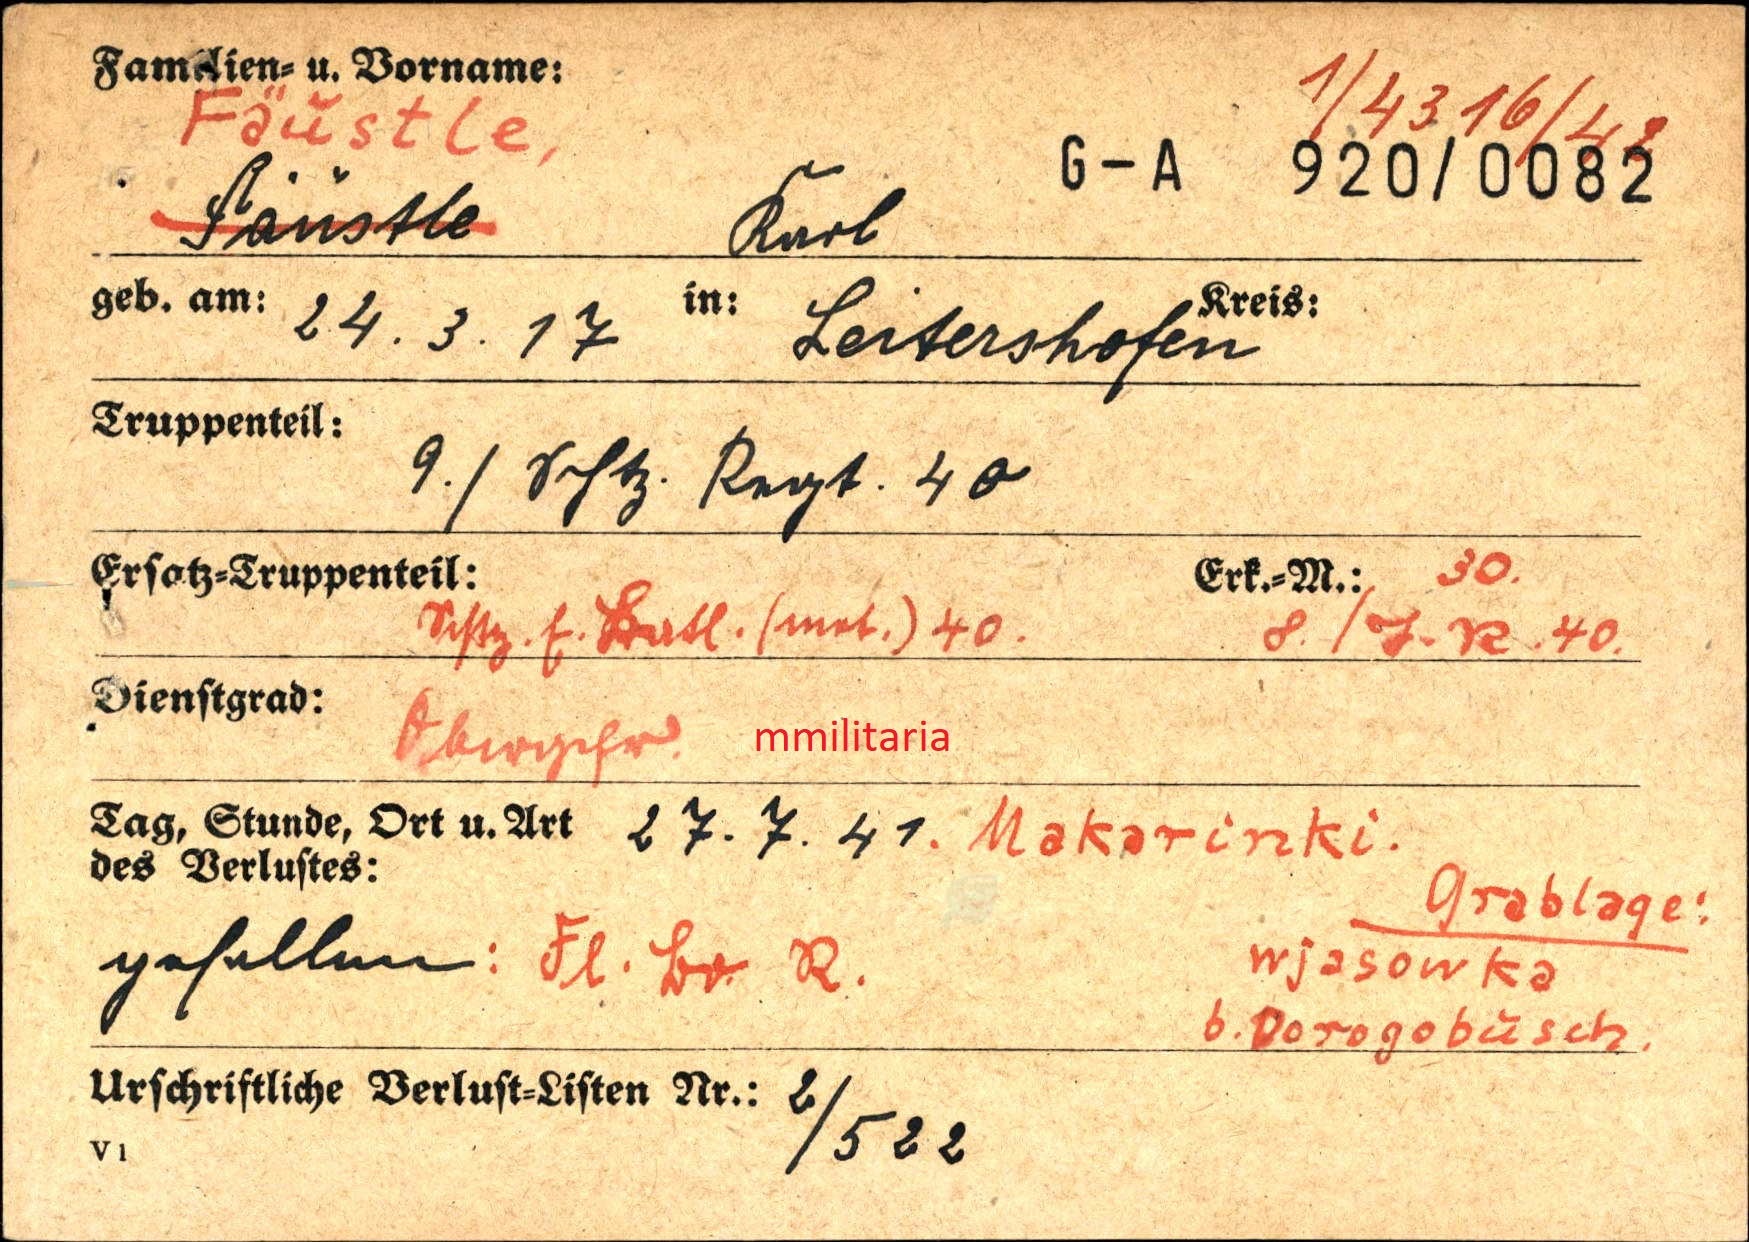 Familien- u. Vorname:
Fäustle,
1/43 16/42
G-A 920/0082
Fäustle Karl
geb. am: 24.3.17 in: Leitershofen Kreis:
Truppenteil:
9./ Schtz. Regt. 40
Ersatz-Truppenteil: Erk.-M.: 30.
Schtz. E. Batl. (mot.) 40. 8./J.R.40.
Dienstgrad:
Obergefr. mmilitaria
Tag, Stunde, Ort u. Art 27.7.41. Makarinki.
des Verlustes:
Grablage:
gefallen: Fl. Br. R. Wjasowka
b. Dorogobusch.
Urschriftliche Verlust-Listen Nr.: 2/522
V1